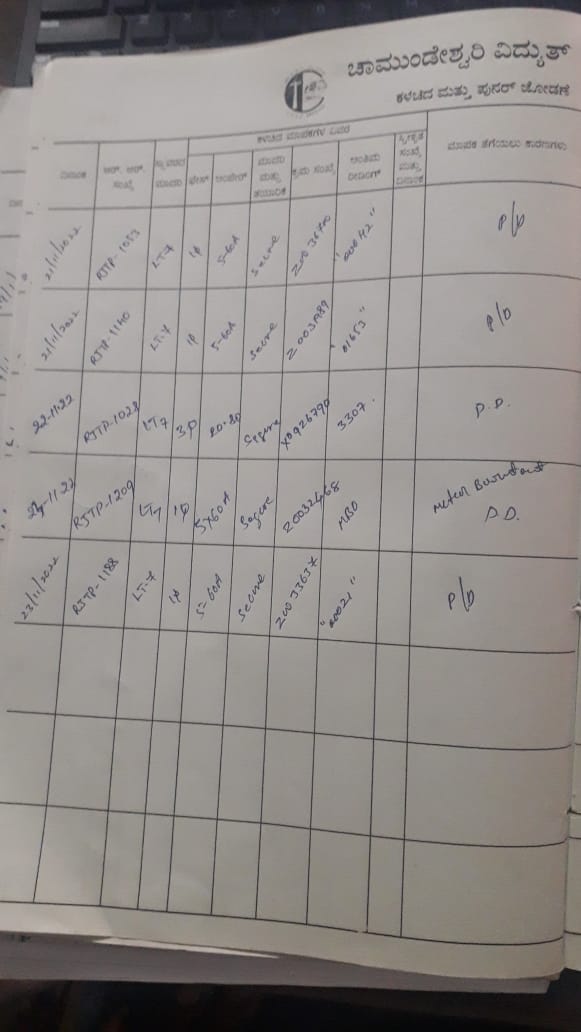 ಚಾಮುಂಡೇಶ್ವರಿ ವಿದ್ಯುತ್
ಕಳಚಿದ ಮತ್ತು ಪುನರ್ ಜೋಡಣೆ
ಕಳಚಿದ ಮಾಪಕಗಳ ವಿವರ
ದಿನಾಂಕ ಆರ್. ಆರ್. ಸಂಖ್ಯೆ ಫೇಸ್ ಆಂಪೇರ್ ಮತ್ತು ಕ್ರಮ ಸಂಖ್ಯೆ ಅಂತಿಮ ರೀಡಿಂಗ್ ಸಂಖ್ಯೆ ಮತ್ತು ದಿನಾಂಕ ಮಾಪಕ ತೆಗೆಯಲು ಕಾರಣಗಳು
21/11/2022 RJTP-1053 LT-7 1φ 5-60A Secure "00042" P/D
21/11/2022 RJTP-1140 LT-7 1φ 5-60A Secure Z003989 "01653" P/D
22-11-22 RJTP-1028 LT7 3φ 20-80 Segure X0926790 3307. P.D.
-11-22 RJTP-1209 LT7 1φ 5X60A Segure Z0032468 MBO Meter Burntout
P.D.
23/11/2022 RJTP-1188 LT-7 1φ 5-60A Secure Z0033637 "00021" P/D